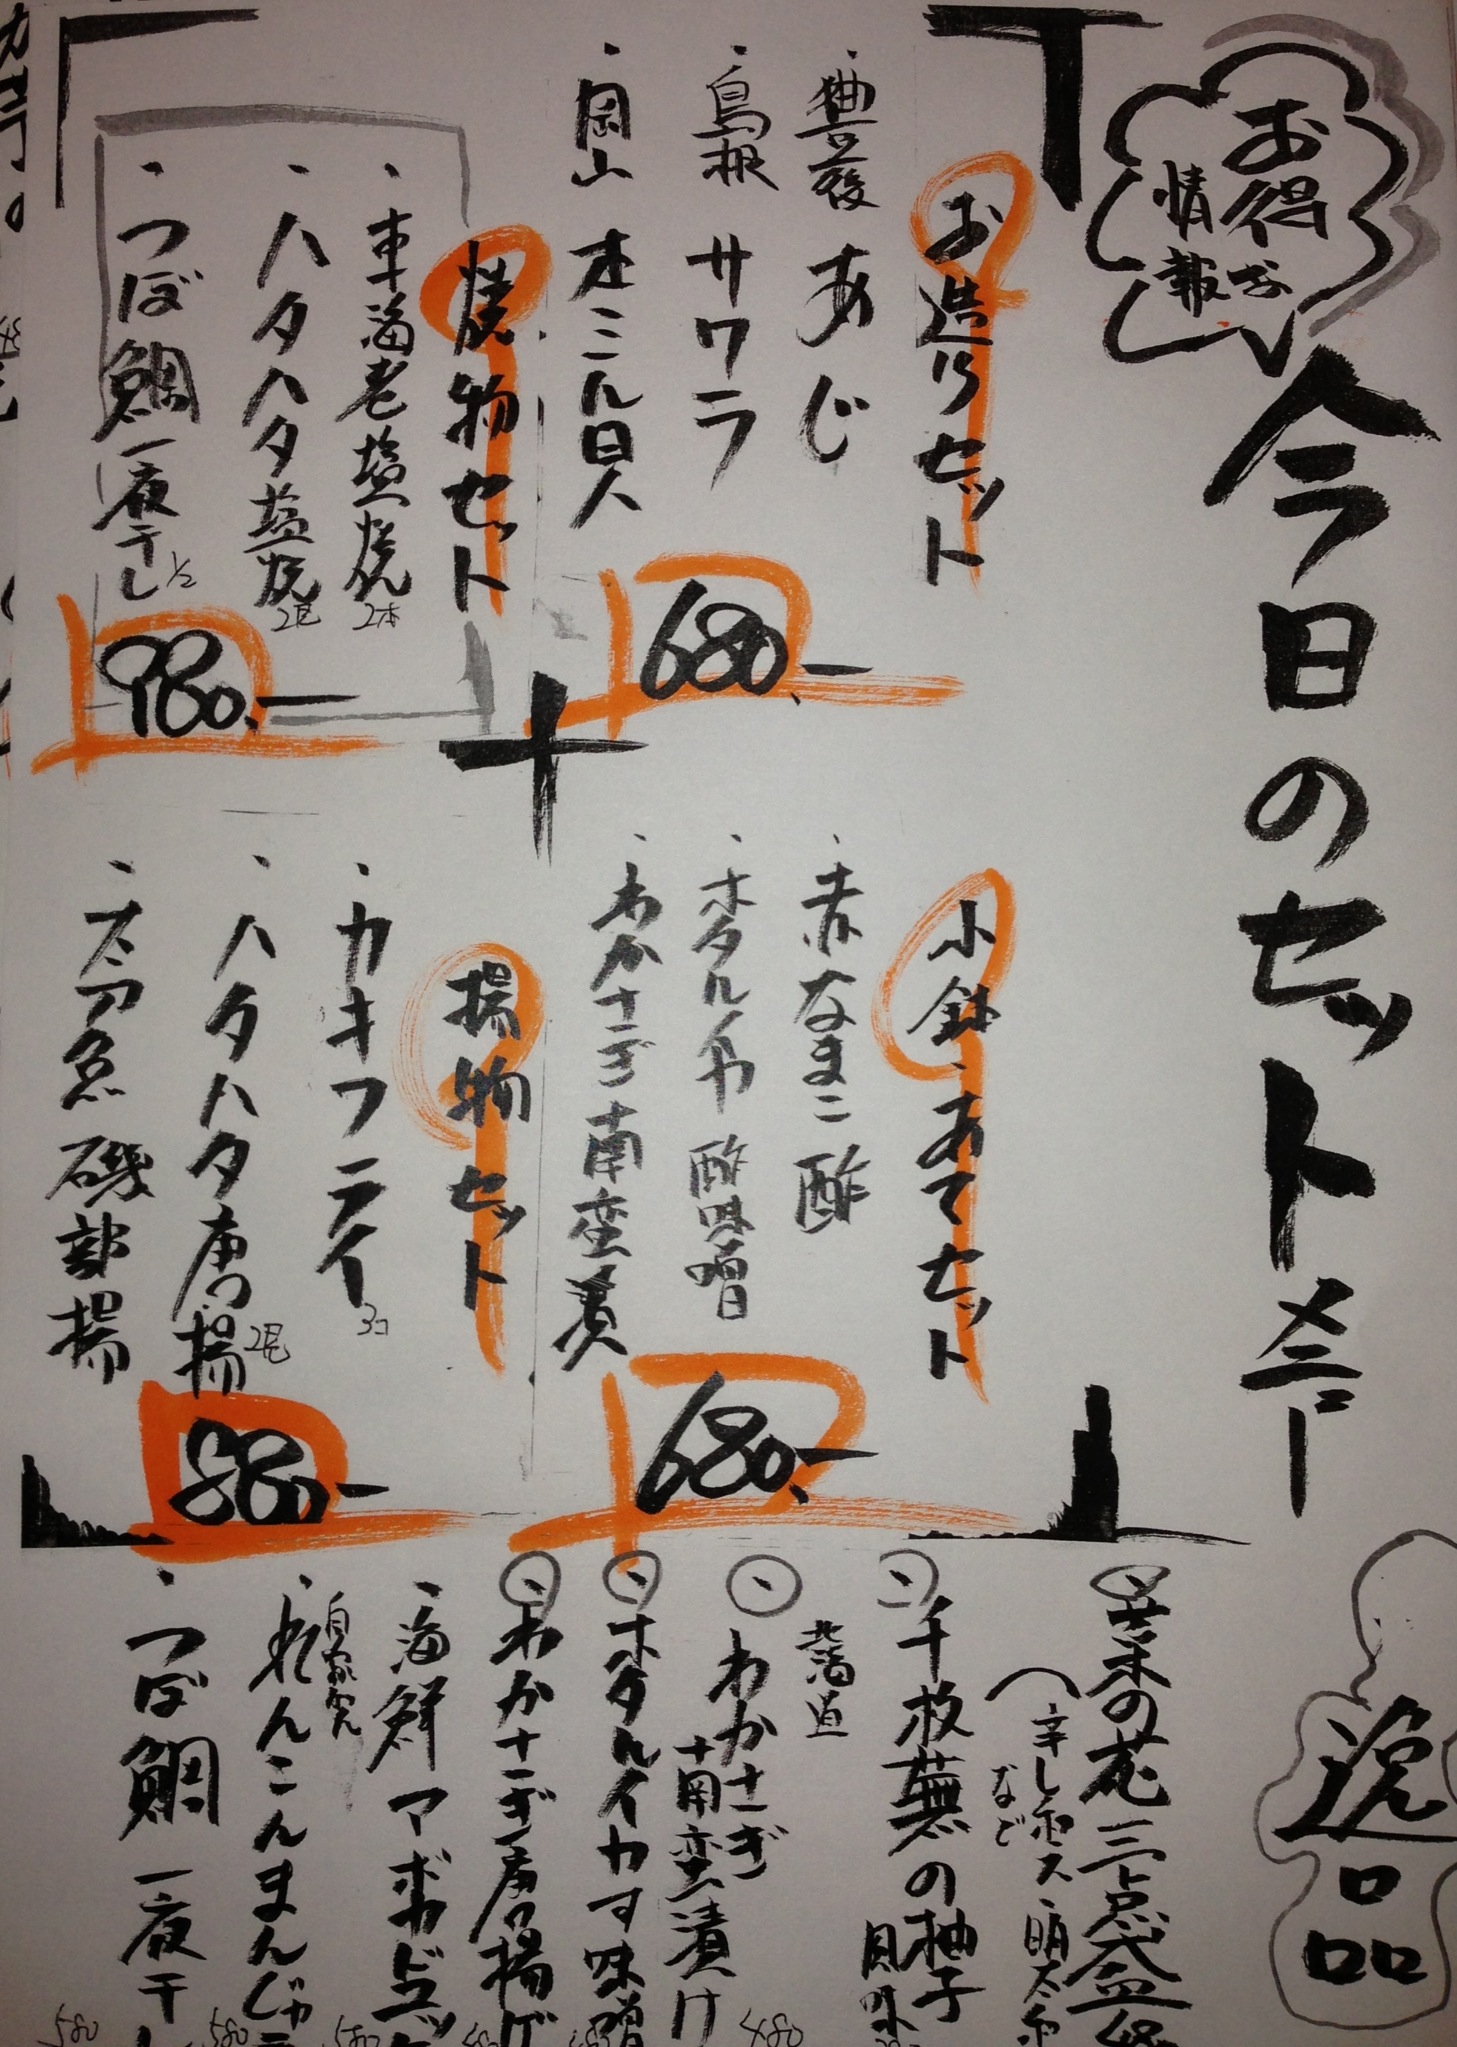 お得な
情報
今日のセットメニュー
お造りセット
・豊後 あじ
・島根 サワラ
・岡山
680.-
焼物セット
・車海老塩焼 2本
・ハタハタ塩焼 2尾
・つぼ鯛一夜干し 1/2
980.-
小鉢・あてセット
・赤なまこ酢
・ホタルイカ酢味噌
・わかさぎ南蛮
680.-
揚物セット
・カキフライ 3コ
・ハタハタ唐揚 2尾
磯部揚
逸品
・菜の花三点盛
辛しポン
など
・千枚蕪の柚子
風味
北海道
・わかさぎ
南蛮漬け
480
・ホタルイカす味噌
・わかさぎ唐揚げ
・海鮮アボカド
自家製
・れんこんまんじゅう
580
・つぼ鯛一夜干し
580